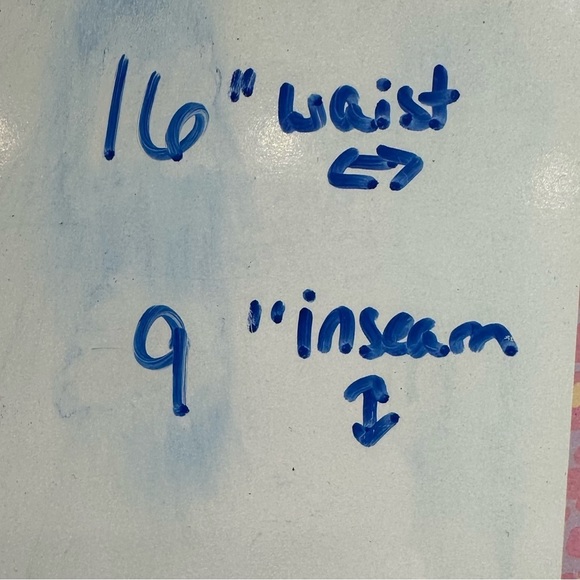 16" waist
↔
9" inseam
↕